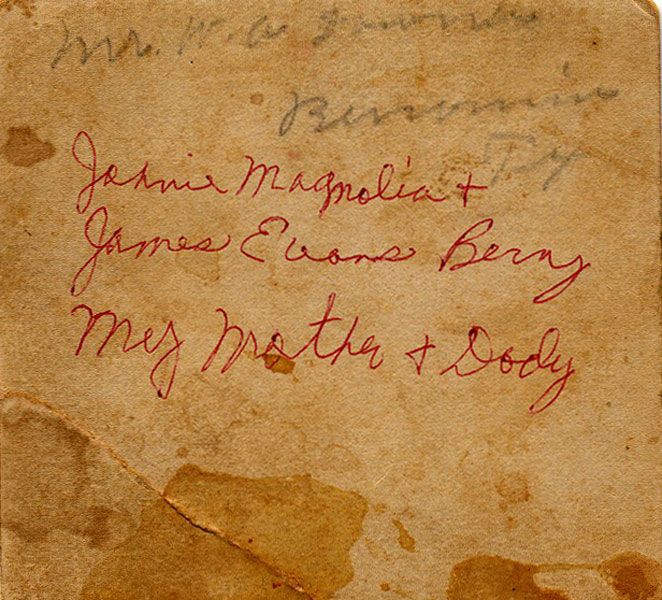 Mr. W. A.
Johnie Magnolia +
James Evans Berry
My Mother + Dady